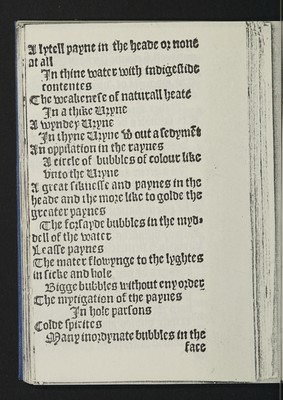 A lytell payne in the heade or none
at all
In thine water with indigestide
contentes
The weakenese of naturall heate
In a thike Uryne
A wyndey Uryne
In thyne Uryne wout a sedymēt
An oppilation in the raynes
A circle of bubbles of colour like
vnto the Uryne
A great siknesse and paynes in the
heade and the more like to golde the
greater paynes
The forsayde bubbles in the myd-
dell of the water
Leasse paynes
The mater flowynge to the lyghtes
in sicke and hole
Bigge bubbles without eny order
The mytigation of the paynes
In hole parsons
Colde spirites
Many inordynate bubbles in the
face